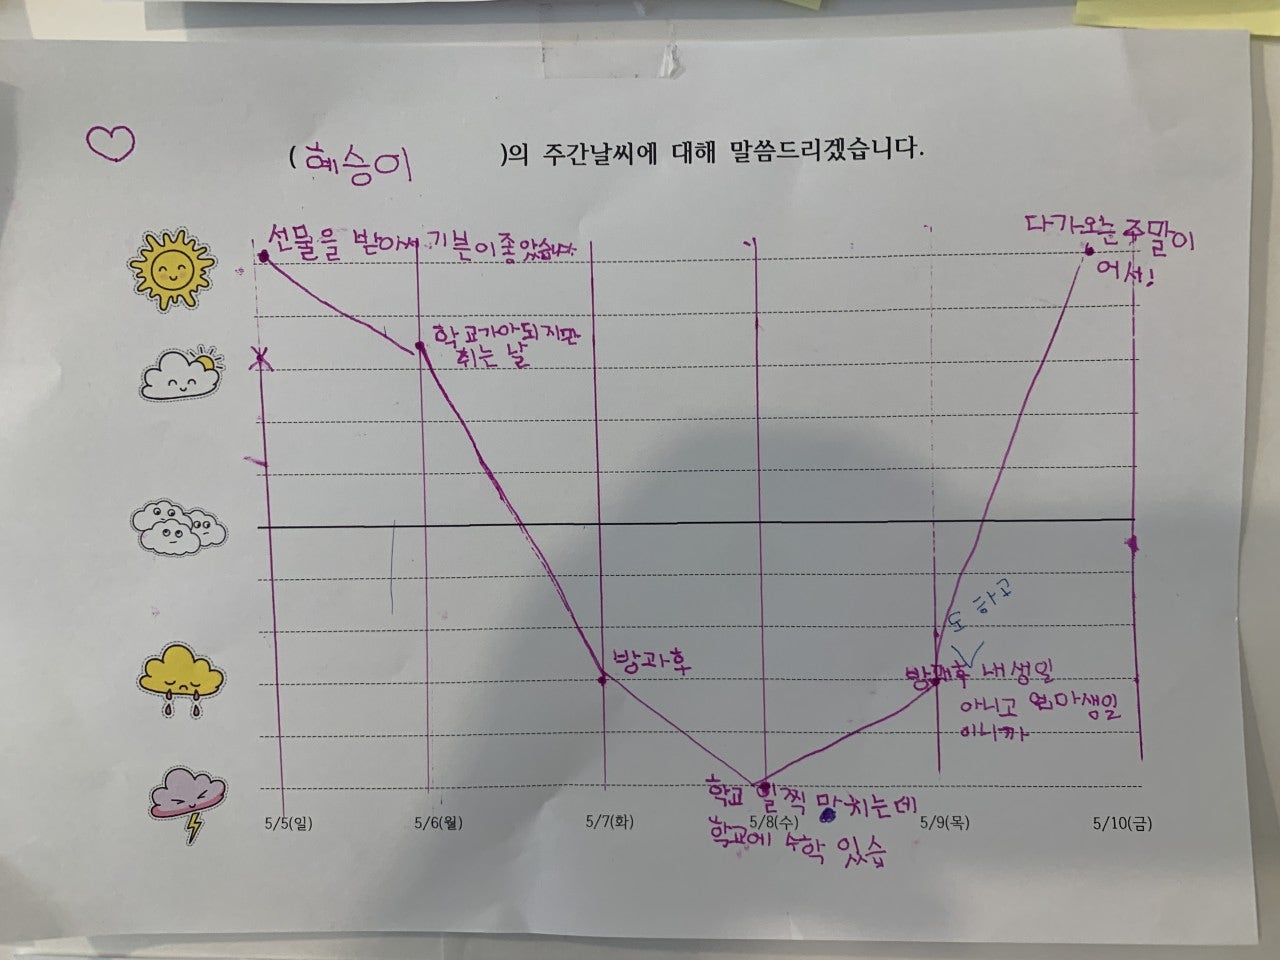 ( 혜승이 )의 주간날씨에 대해 말씀드리겠습니다.
선물을 받아서 기분이 좋았습니다.
다가오는 주말이
어서!
학교가야되지만
쉬는 날
방과후
도 하고
방과후 내생일
아니고 엄마생일
이니까
학교 일찍 마치는데
학교에 수학 있습
5/5(일) 5/6(월) 5/7(화) 5/8(수) 5/9(목) 5/10(금)